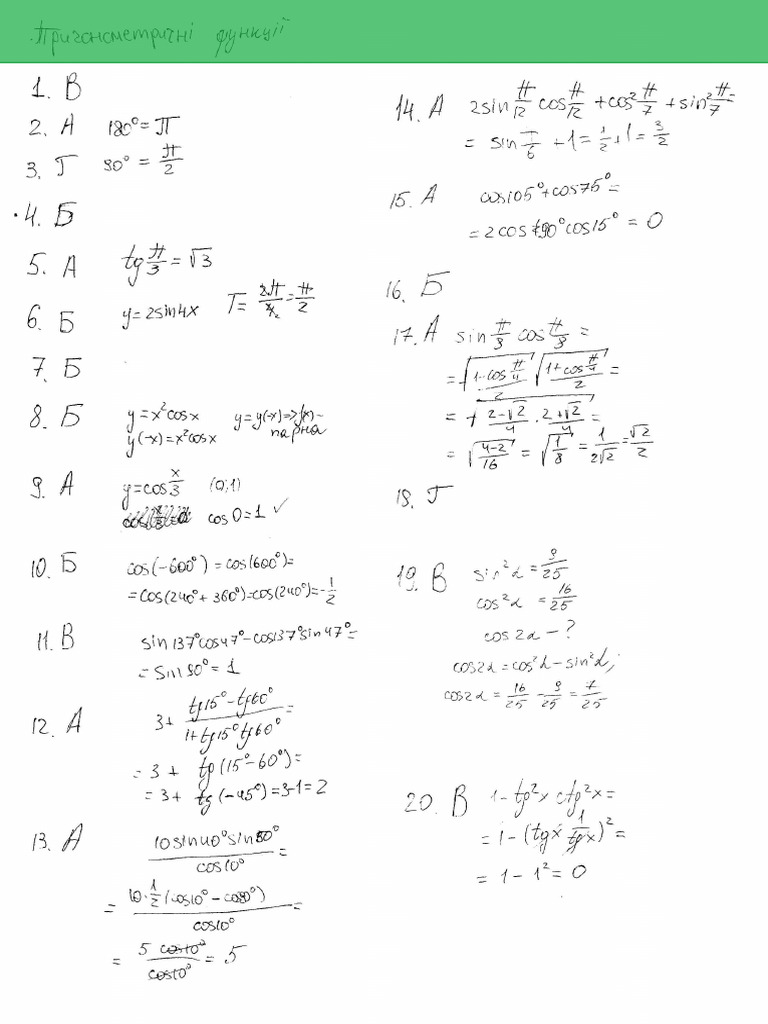 Тригонометричні функції
1. В
2. А 180° = π
3. Г 90° = π/2
4. Б
5. А tg π/3 = √3
6. Б y = 2sin4x T = 2π/4₂ = π/2
7. Б
8. Б y = x²cosx y = y(-x) => f(x) -
y(-x) = x²cosx парна
9. А y = cos x/3 (0;1)
cos0 = 1 ✓
10. Б cos(-600°) = cos(600°) =
= cos(240° + 360°) = cos(240°) = -1/2
11. В sin137°cos47° - cos137°sin47° =
= sin90° = 1
12. А 3 + (tg15° - tg60°)/(1 + tg15°tg60°) =
= 3 + tg(15° - 60°) =
= 3 + tg(-45°) = 3-1 = 2
13. А 10sin40°sin50°/cos10° =
= 10·1/2(cos10° - cos90°)/cos10° =
= 5cos10°/cos10° = 5
14. А 2sin π/12 cos π/12 + cos² π/7 + sin² π/7 =
= sin π/6 + 1 = 1/2 + 1 = 3/2
15. А cos105° + cos75° =
= 2cos90°cos15° = 0
16. Б
17. А sin π/8 cos π/8 =
= √((1-cos π/4)/2) √((1+cos π/4)/2) =
= √((2-√2)/4 · (2+√2)/4) =
= √((4-2)/16) = √(1/8) = 1/(2√2) = √2/2
18. Г
19. В sin²α = 9/25
cos²α = 16/25
cos2α - ?
cos2α = cos²α - sin²α;
cos2α = 16/25 - 9/25 = 7/25
20. В 1 - tg²x ctg²x =
= 1 - (tgx 1/tgx)² =
= 1 - 1² = 0